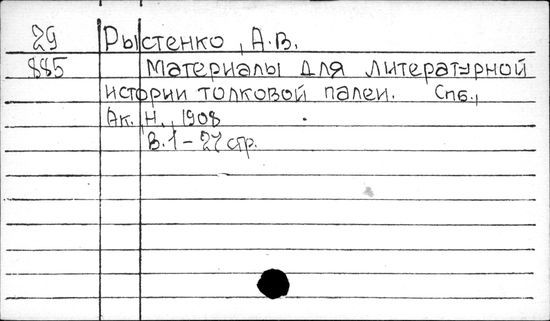 29 Рыстенко, А.В.
885 Материалы для литературной
истории толковой палеи. Спб.,
Ак. Н., 1908
В.1-27 стр.